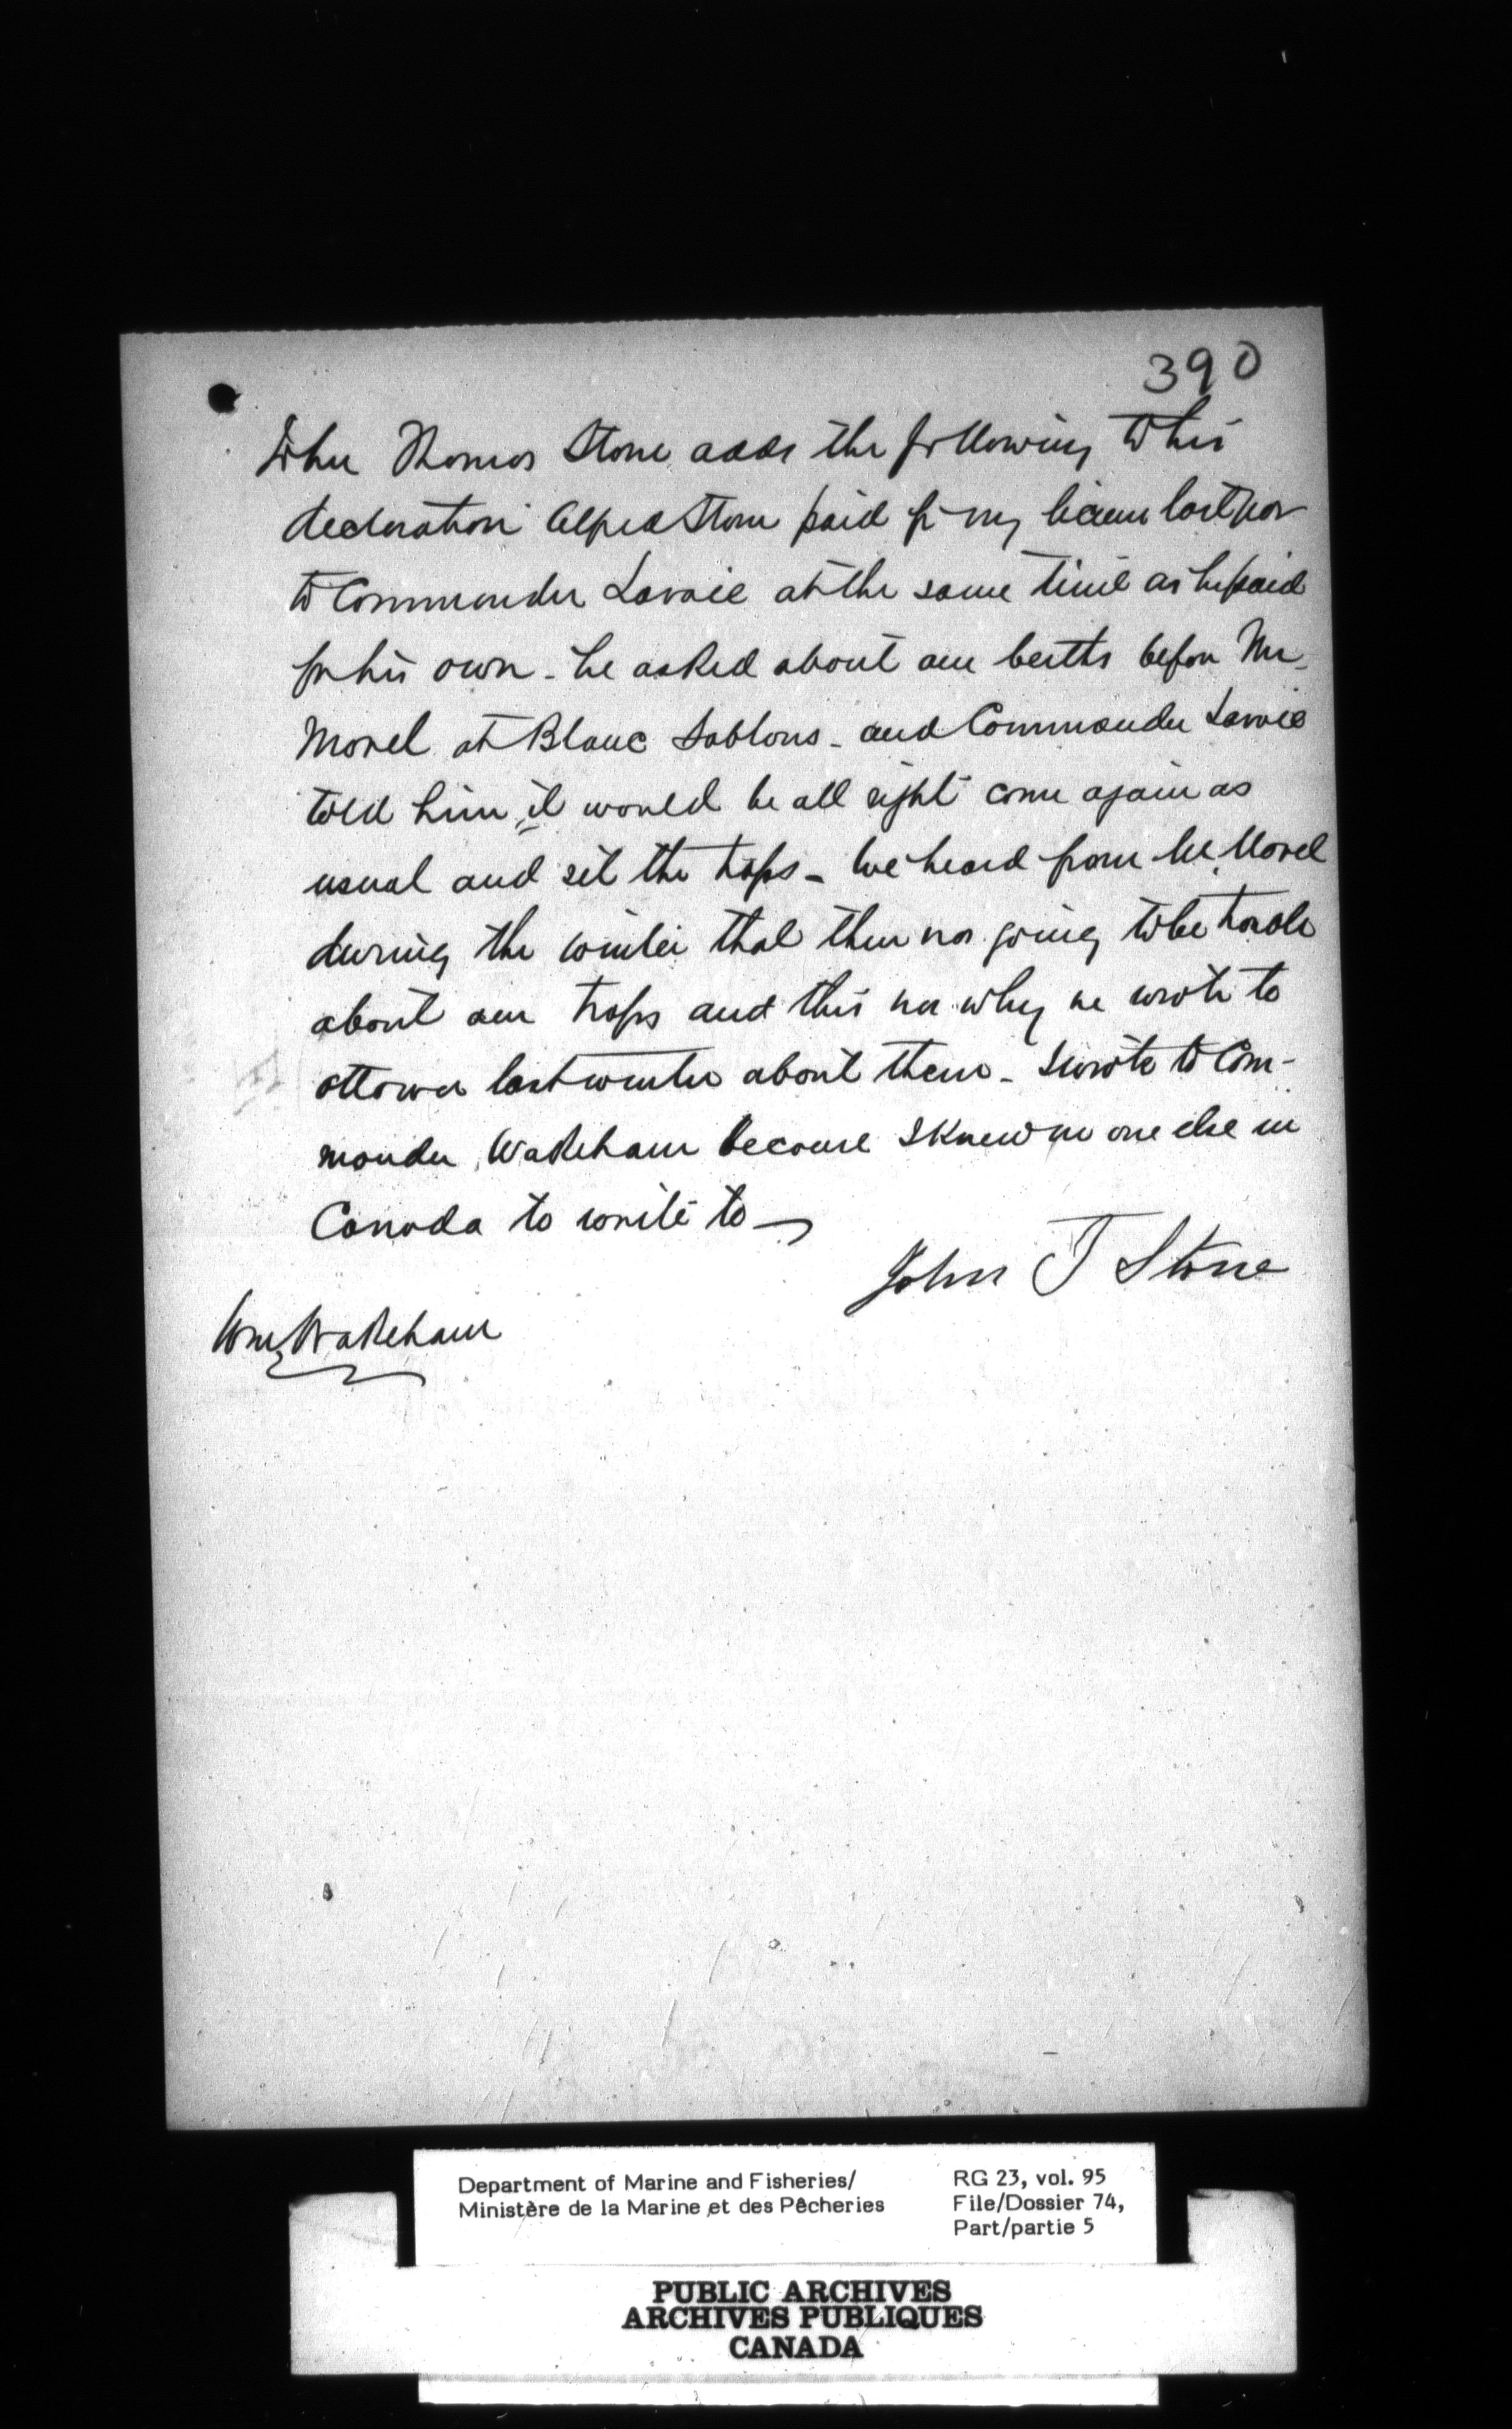 390
John Thomas Stone adds the following to his
declaration Alfred Stone paid for my license last year
to Commander Lavoie at the same time as he paid
for his own - he asked about our berths before Mr.
Morel at Blanc Sablons - and Commander Lavoie
told him it would be all right come again as
usual and set the traps - We heard from Mr Morel
during the winter that there was going to be trouble
about our traps and this was why we wrote to
Ottawa last winter about them - I wrote to Com-
mander Wakeham because I knew no one else in
Canada to write to
John T Stone
Wm Wakeham
Department of Marine and Fisheries/
Ministère de la Marine et des Pêcheries
RG 23, vol. 95
File/Dossier 74,
Part/partie 5
PUBLIC ARCHIVES
ARCHIVES PUBLIQUES
CANADA